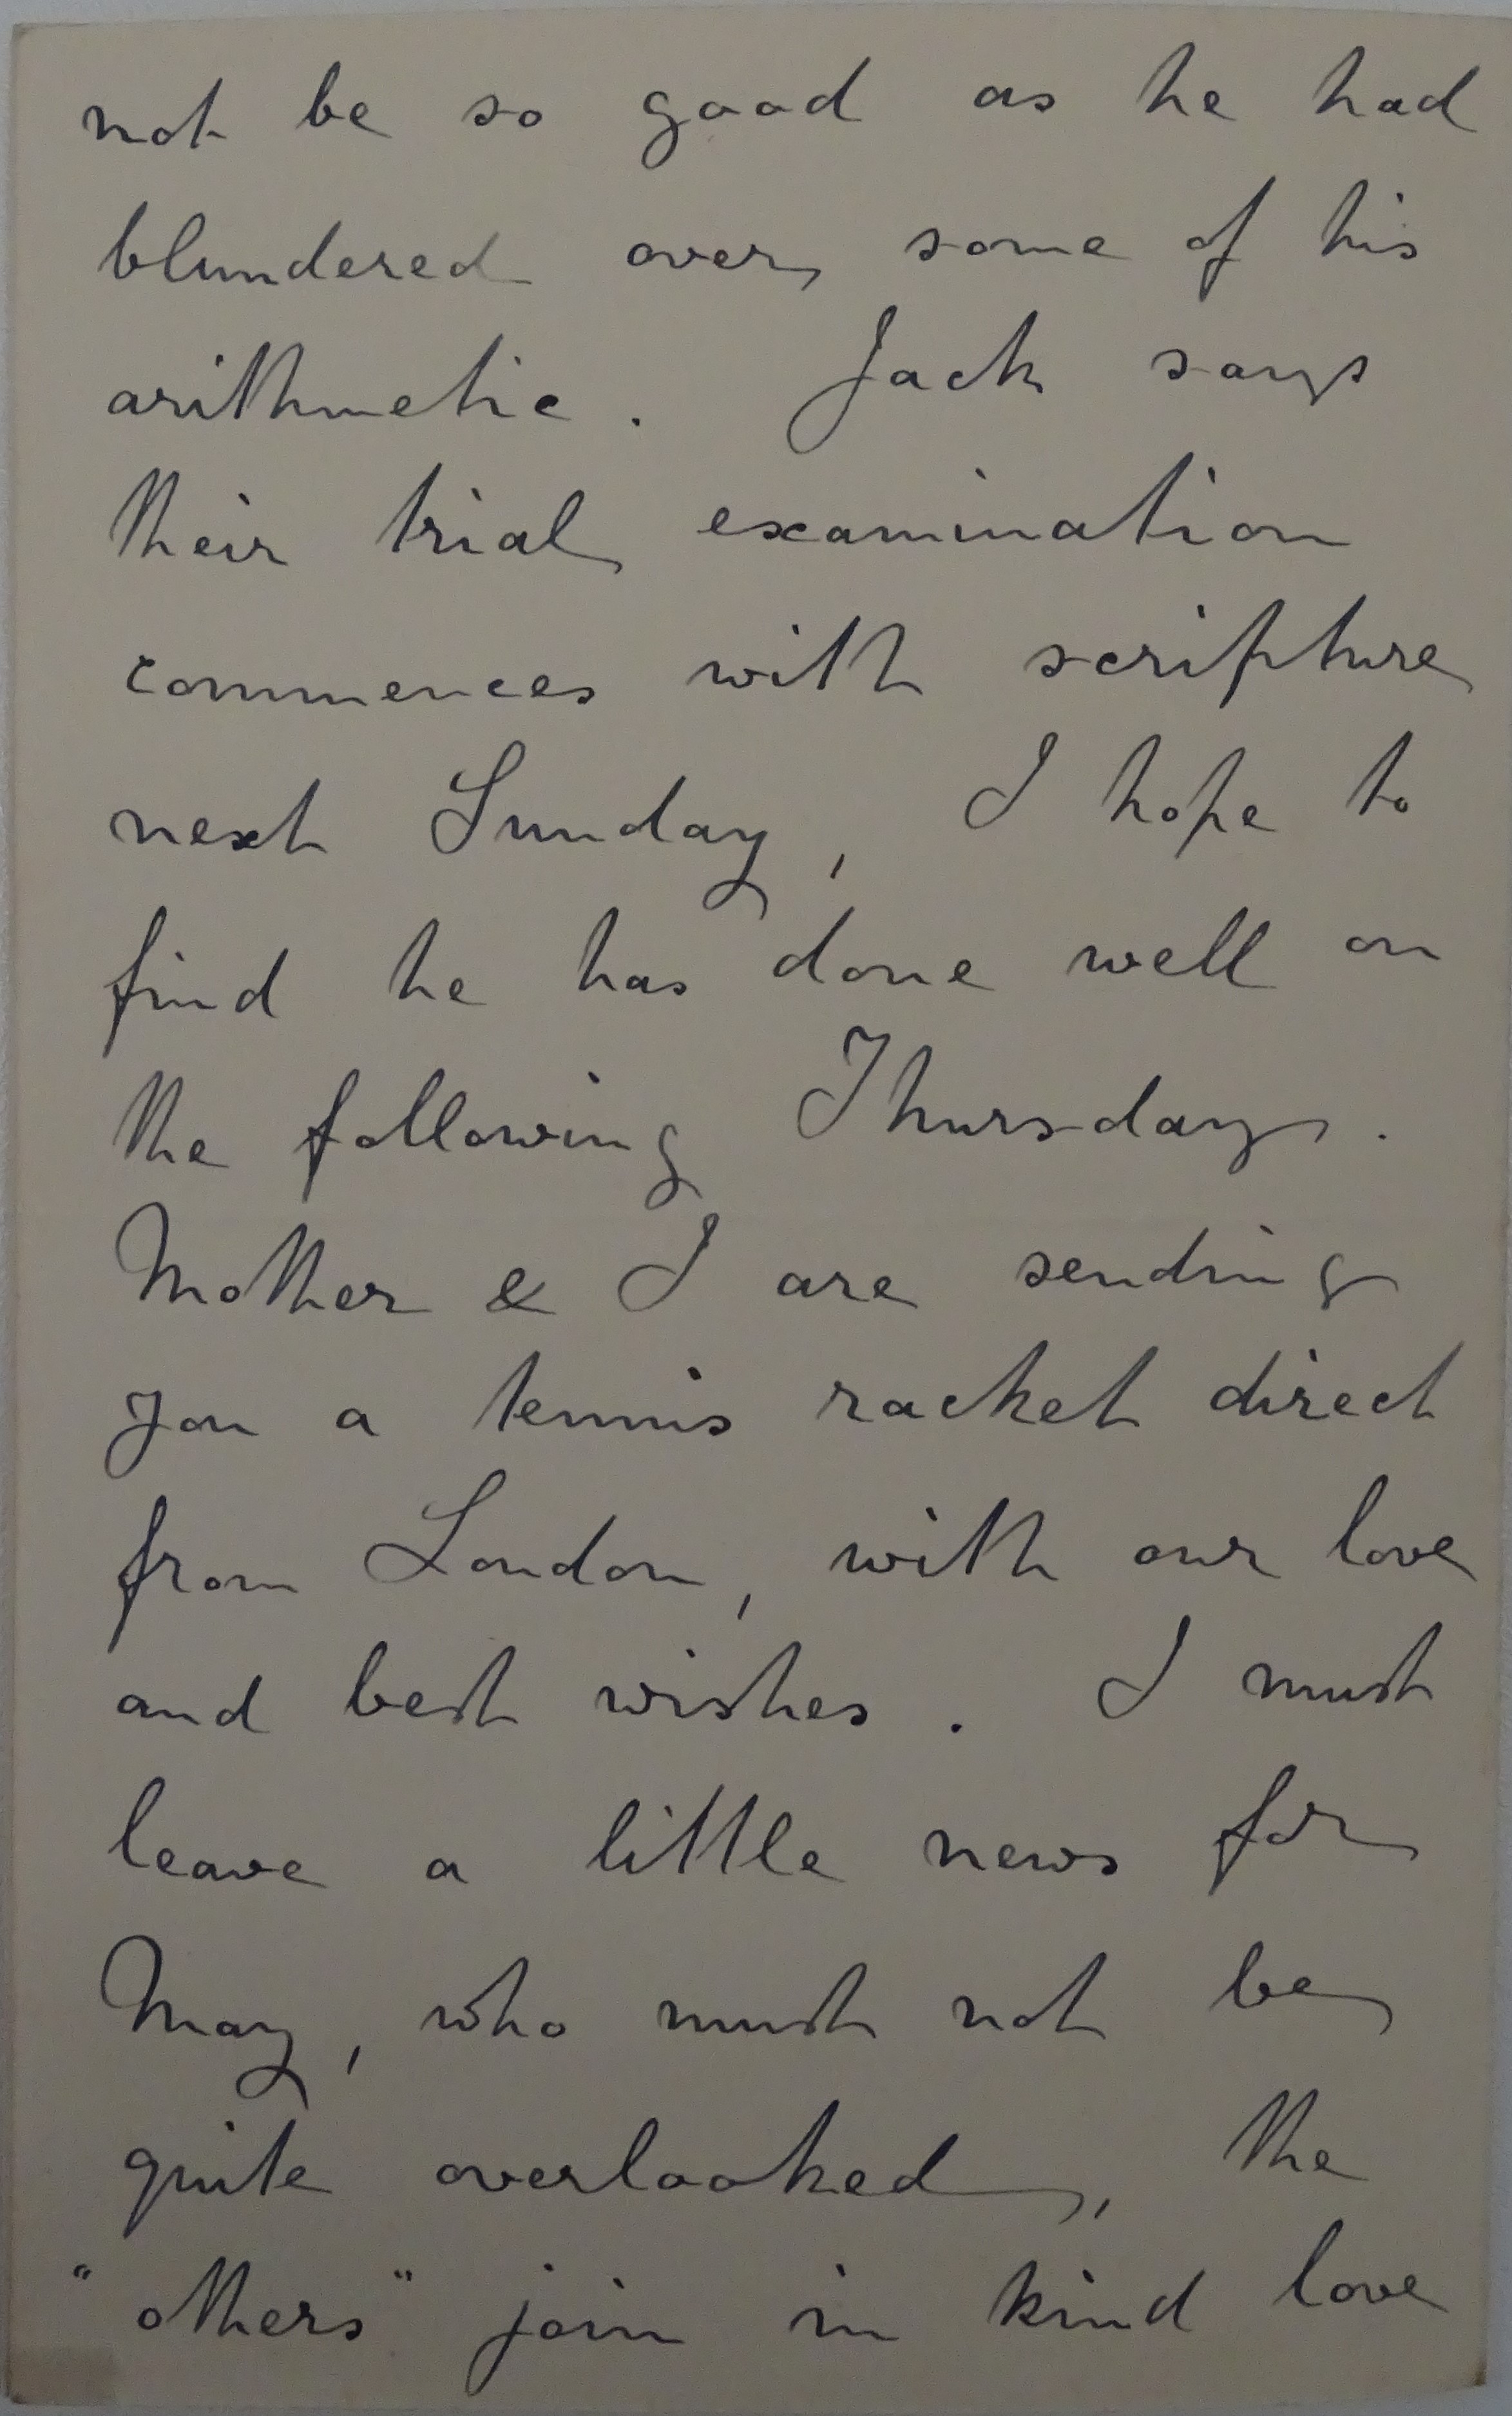 not be so good as he had
blundered over some of his
arithmetic. Jack says
their trial examination
commences with scripture
next Sunday, I hope to
find he has done well on
the following Thursday.
Mother & I are sending
you a tennis racket direct
from London, with our love
and best wishes. I must
leave a little news for
May, who must not be
quite overlooked, the
"others" join in kind love